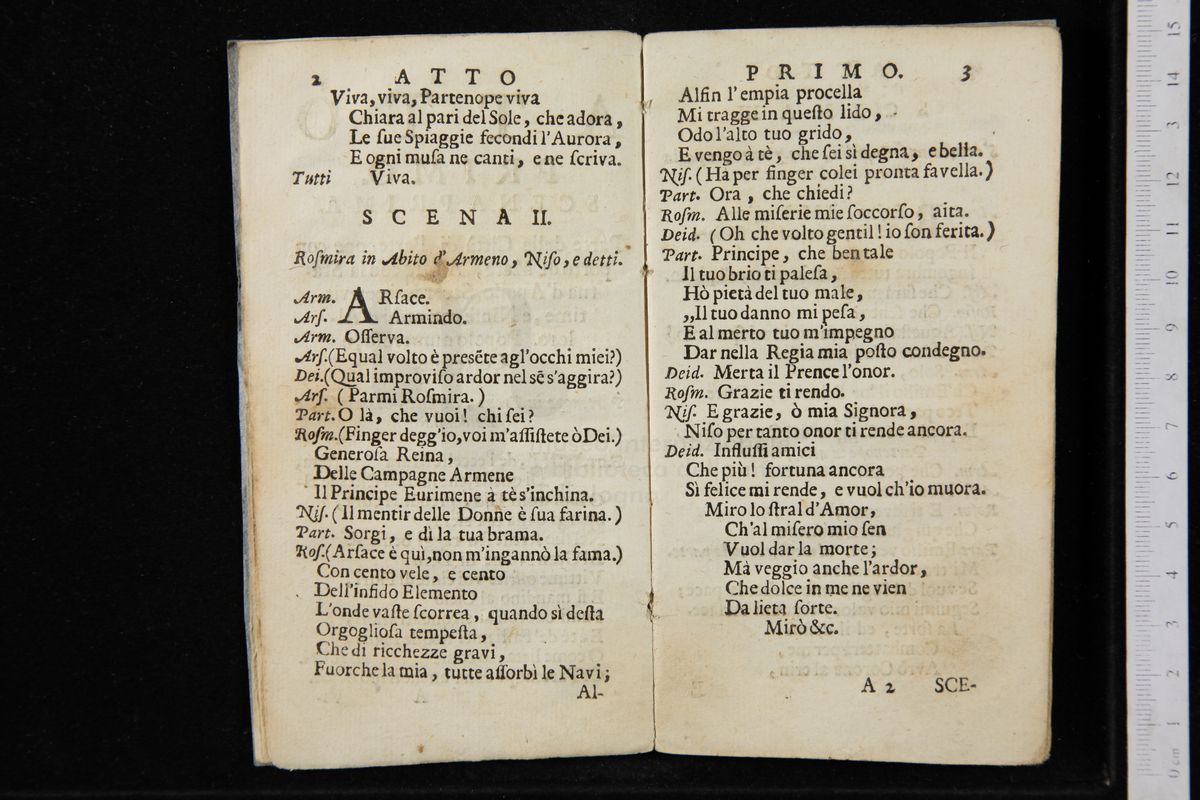 2 ATTO
Viva, viva, Partenope viva
Chiara al pari del Sole, che adora,
Le ſue Spiaggie fecondi l'Aurora,
E ogni muſa ne canti, e ne ſcriva.
Tutti Viva.
SCENA II.
Roſmira in Abito d'Armeno, Niſo, e detti.
Arm. ARſace.
Arſ. Armindo.
Arm. Oſſerva.
Arſ. (Equal volto è preſēte agl'occhi miei?)
Dei. (Qual improviſo ardor nel sē s'aggira?)
Arſ. (Parmi Roſmira.)
Part. O là, che vuoi! chi ſei?
Roſm. (Finger degg'io, voi m'aſſiſtete ò Dei.)
Generoſa Reina,
Delle Campagne Armene
Il Principe Eurimene à tè s'inchina.
Niſ. (Il mentir delle Donne è ſua farina.)
Part. Sorgi, e dì la tua brama.
Roſ. (Arſace è quì, non m'ingannò la fama.)
Con cento vele, e cento
Dell'infido Elemento
L'onde vaſte ſcorrea, quando sì deſta
Orgoglioſa tempeſta,
Che di ricchezze gravi,
Fuorche la mia, tutte aſſorbì le Navi;
Al-
PRIMO. 3
Alfin l'empia procella
Mi tragge in queſto lido,
Odo l'alto tuo grido,
E vengo à tè, che ſei sì degna, e bella.
Niſ. (Hà per finger colei pronta favella.)
Part. Ora, che chiedi?
Roſm. Alle miſerie mie ſoccorſo, aita.
Deid. (Oh che volto gentil! io ſon ferita.)
Part. Principe, che ben tale
Il tuo brio ti paleſa,
Hò pietà del tuo male,
„Il tuo danno mi peſa,
E al merto tuo m'impegno
Dar nella Regia mia poſto condegno.
Deid. Merta il Prence l'onor.
Roſm. Grazie ti rendo.
Niſ. E grazie, ò mia Signora,
Niſo per tanto onor ti rende ancora.
Deid. Influſſi amici
Che più! fortuna ancora
Sì felice mi rende, e vuol ch'io muora.
Miro lo ſtral d'Amor,
Ch'al miſero mio ſen
Vuol dar la morte;
Mà veggio anche l'ardor,
Che dolce in me ne vien
Da lieta ſorte.
Mirò &c.
A 2 SCE-
15
14
13
12
11
10
9
8
7
6
5
4
3
2
1
0 cm